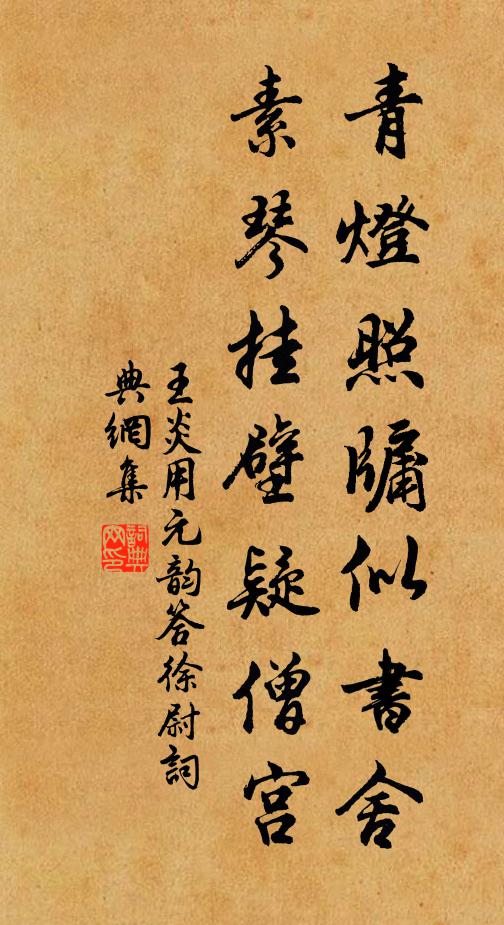 青燈照牖似書舍
素琴挂壁疑僧宮
王炎用元韵答徐尉詞
典網集
詞典
网印